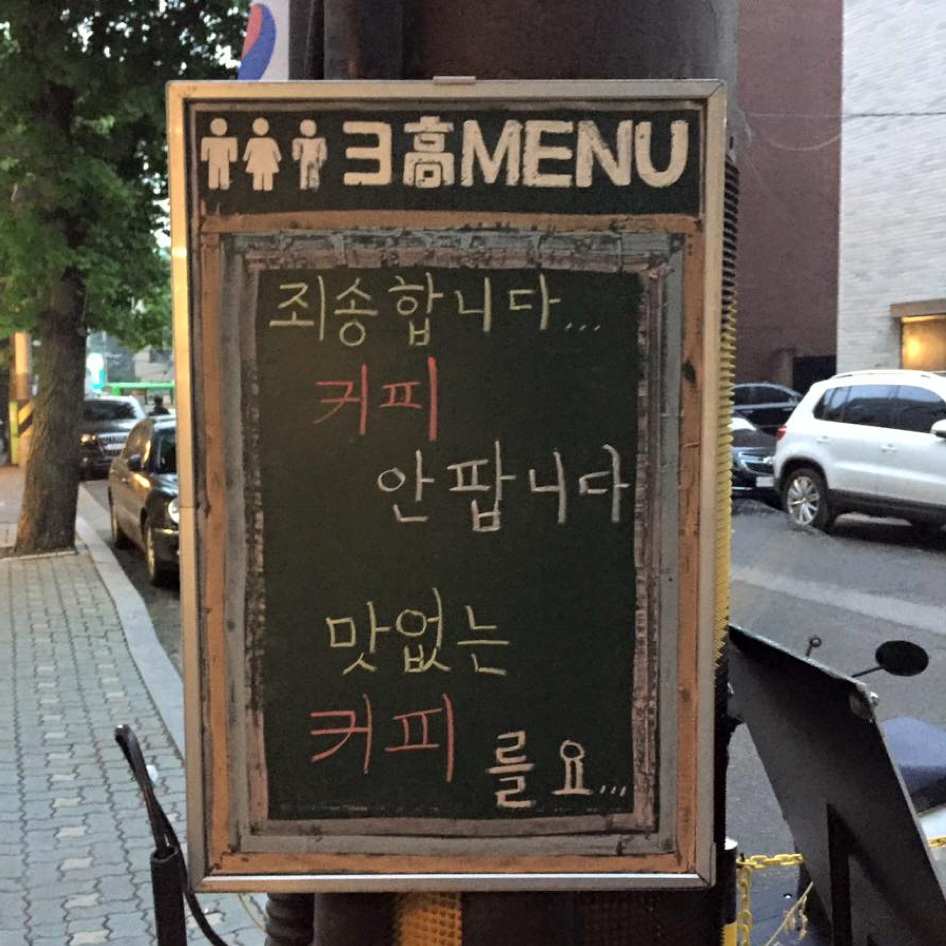 3高MENU
죄송합니다...
커피
안팝니다
맛없는
커피를요...